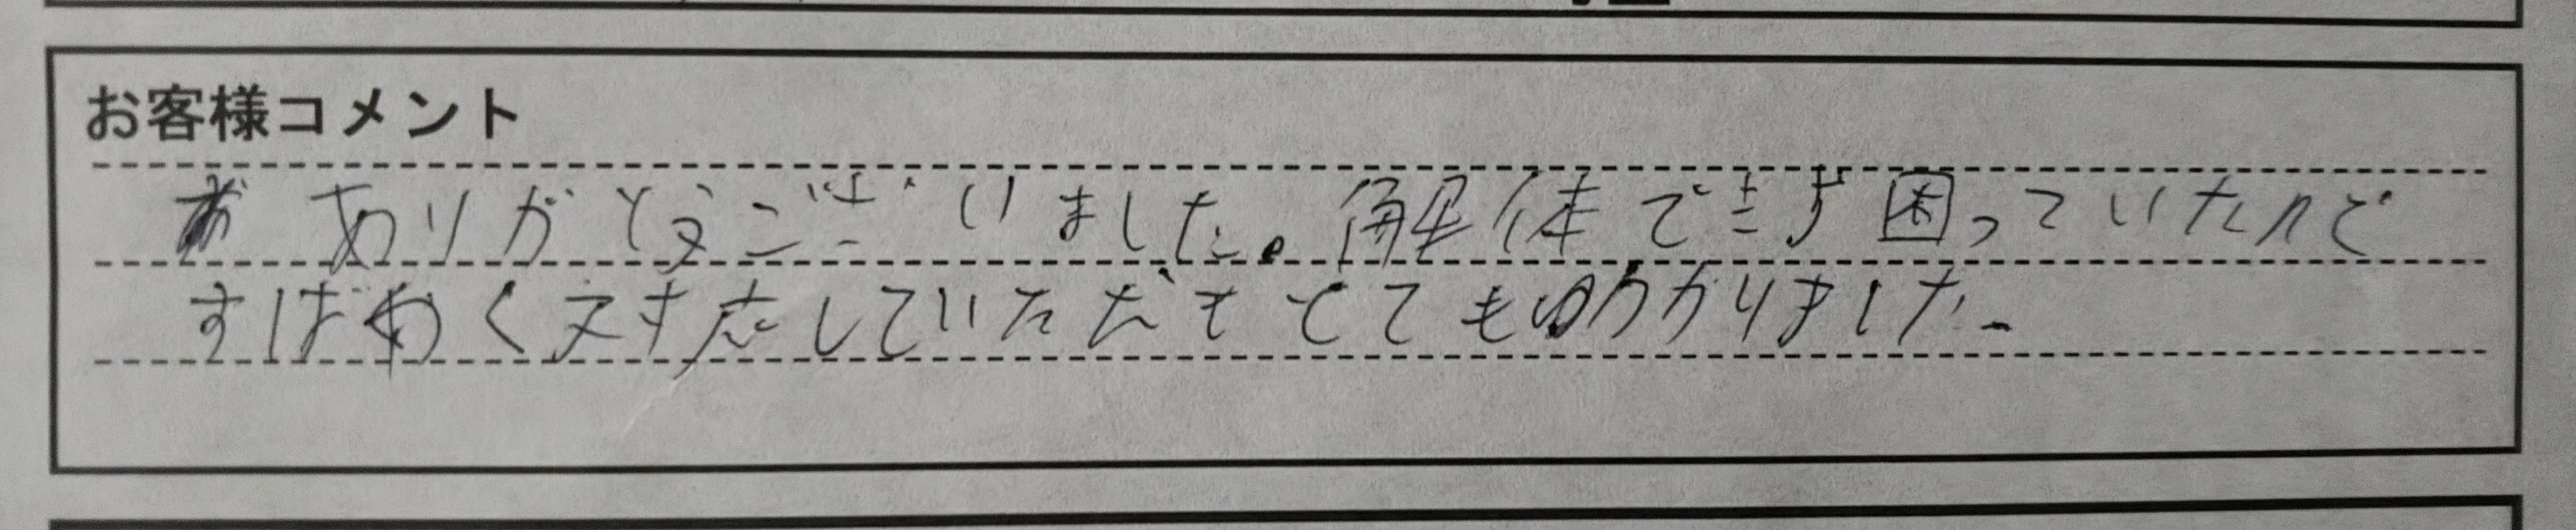 お客様コメント
ありがとうございました。解体できず困っていたので
すばやく対応していただきとても助かりました。